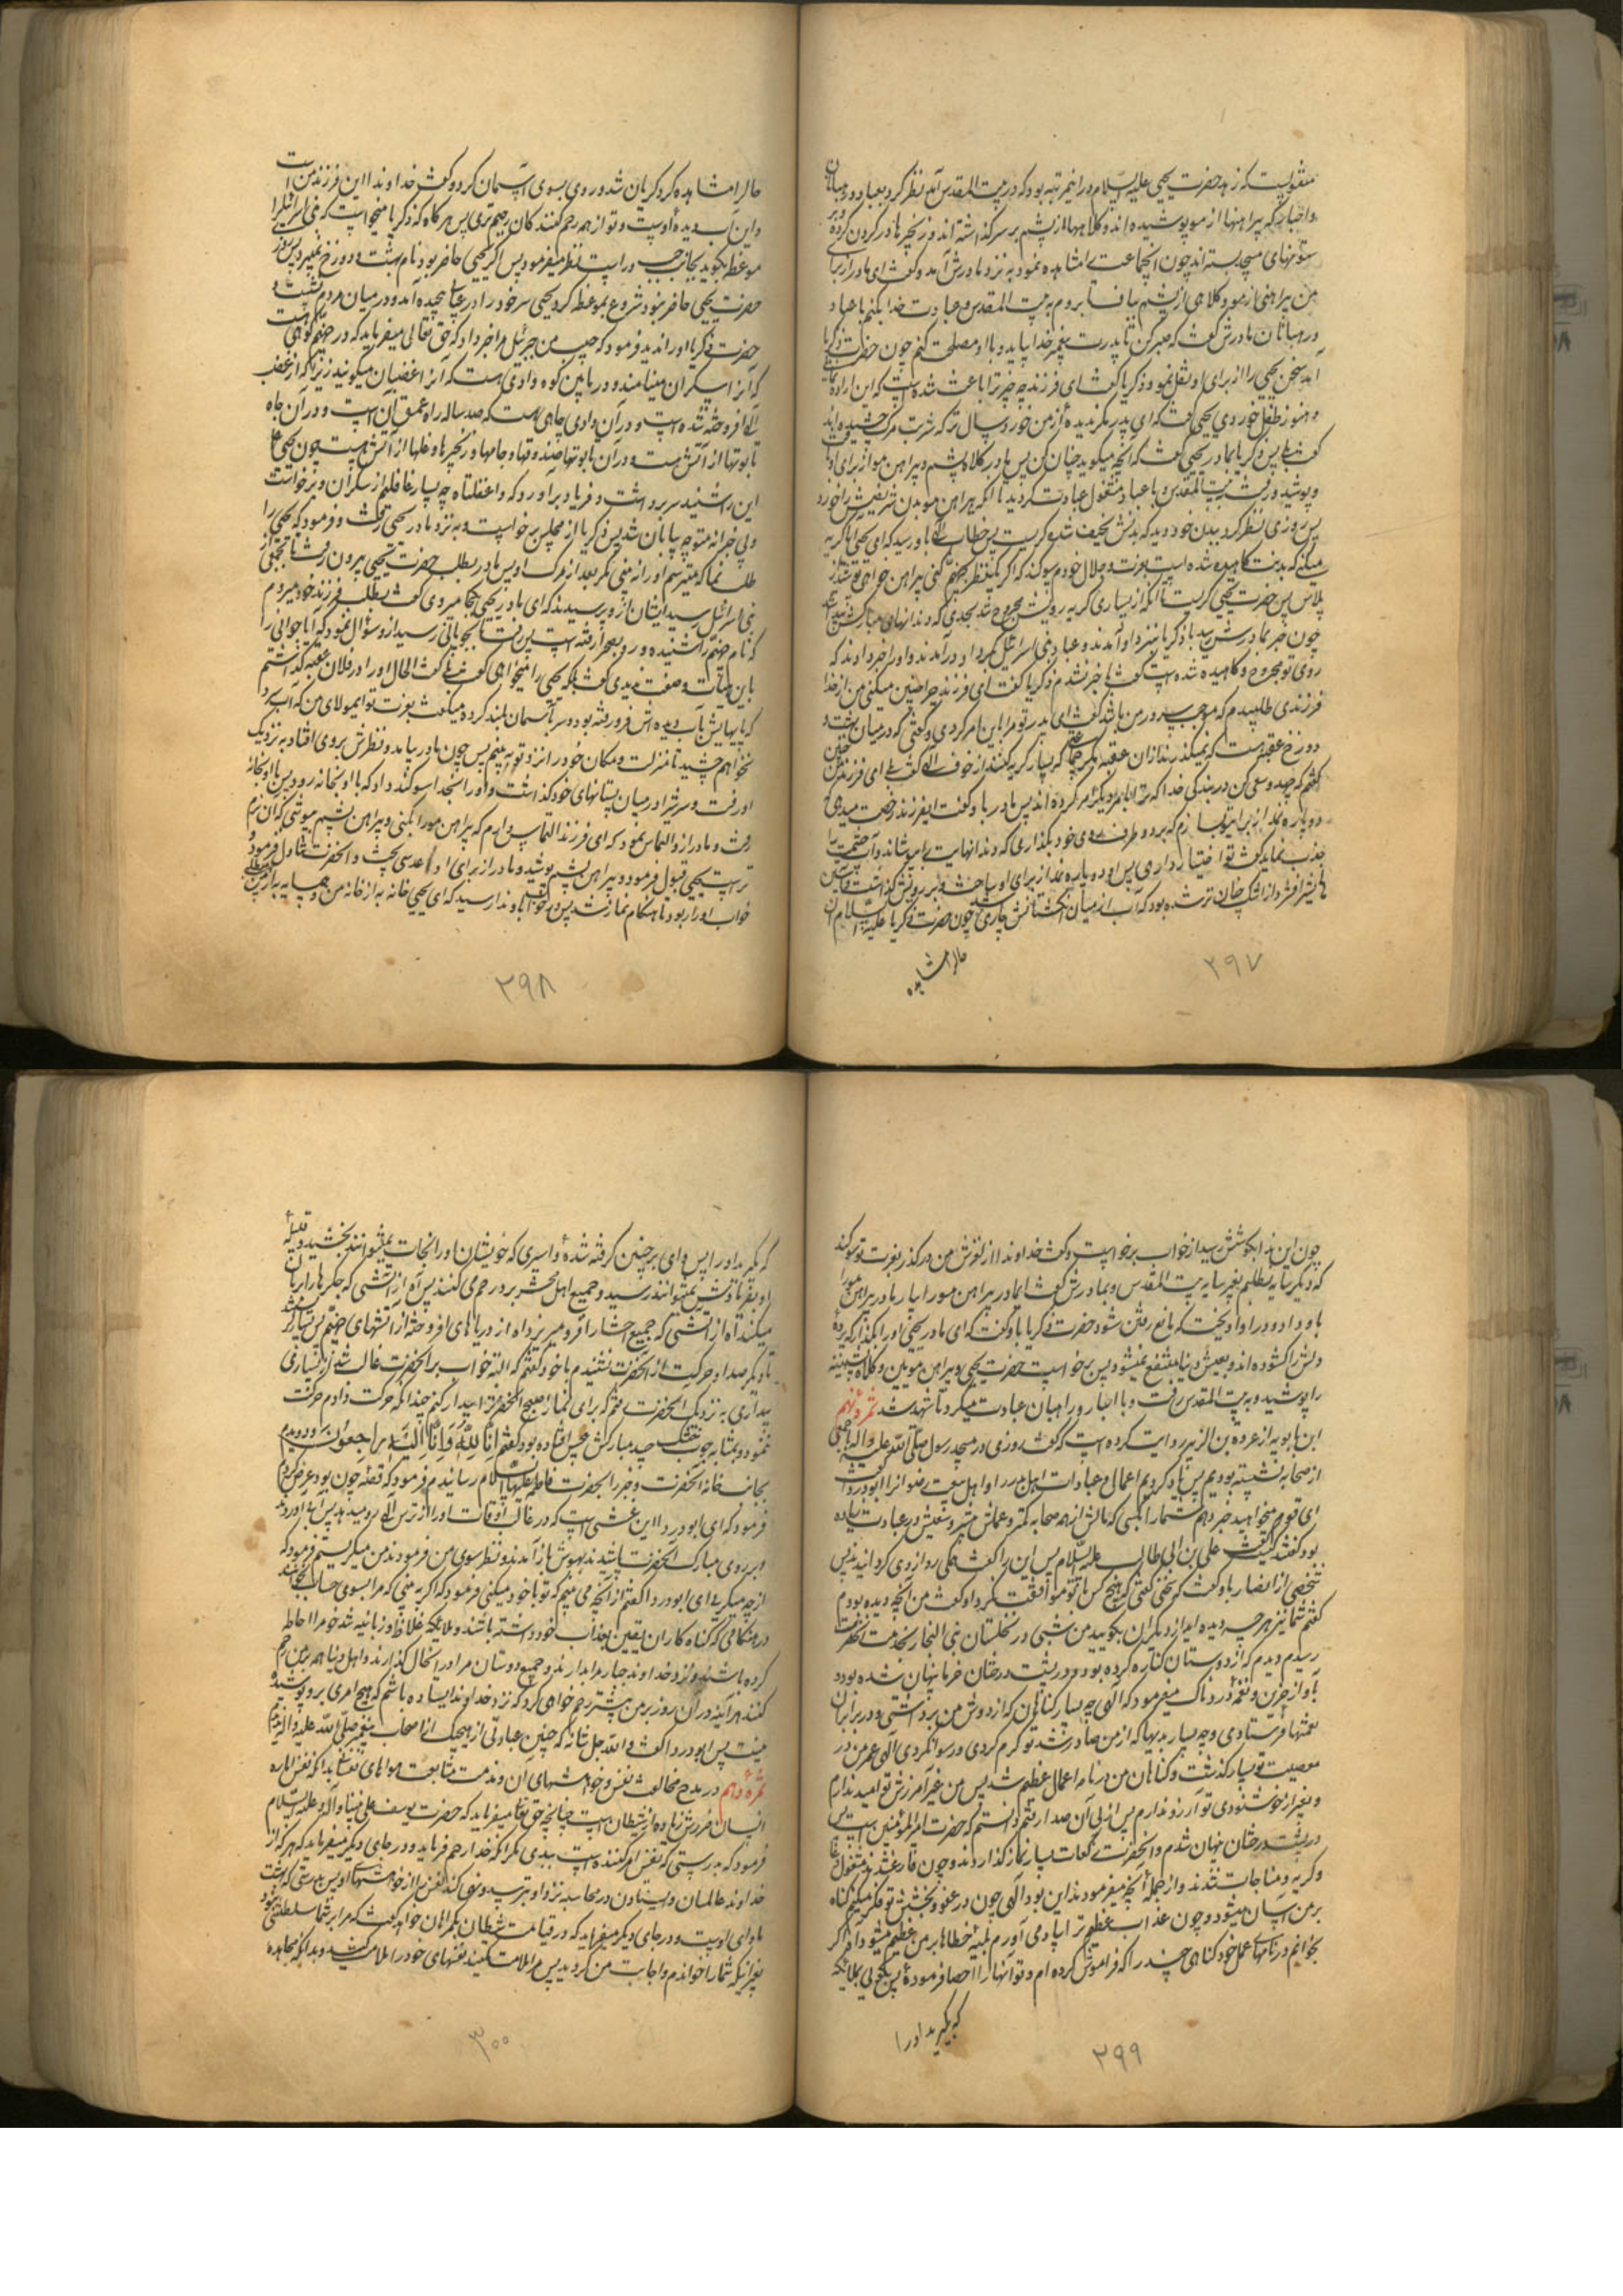 منقولست که زهد حضرت یحیی علیه السلام در این مرتبه بود که در بیت المقدس آمد نظر کرد بعباد و رهبانان
و احبار که پیراهنها از مو پوشیده اند و کلاهها از پشم بر سر گذاشته اند و زنجیرها در گردن کرده و بر
ستونهای مسجد بسته اند چون این جماعت را مشاهده نمود به نزد مادرش آمد و گفت ای مادر از برای
من پیراهنی از مو و کلاهی از پشم بباف تا بروم به بیت المقدس و عبادت خدا بکنم با عباد
و رهبانان مادرش گفت که صبر کن تا پدرت پیغمبر خدا بیاید و با او مصلحت کنم چون حضرت زکریا
آمد سخن یحیی را از برای او نقل نمود زکریا گفت ای فرزند چه چیز ترا باعث شده است که این اراده
و هنوز طفل خوردی یحیی گفت که ای پدر مگر ندیده از من خورد سال تر که شربت مرگ چشیده اند
گفت بلی پس زکریا بمادر یحیی گفت که آنچه میگوید چنان کن پس مادر کلاه پشم و پیراهن مو از برای او بافت
و پوشید و رفت به بیت المقدس و با عباد مشغول عبادت گردید تا آنکه پیراهن مو بدن شریفش را خورد
پس روزی نظر کرد ببدن خود دید که بدنش نحیف شده گریست پس خطاب الهی باو رسید که ای یحیی آیا گریه
میکنی که بدنت کاهیده شده است بعزت و جلال خودم سوگند که اگر یک نظر بجهنم کنی پیراهن
پلاس پس حضرت یحیی گریست تا آنکه از بسیاری گریه رویش مجروح شد بحدی که دندانهای مبارکش پیدا شد
چون خبر بمادرش رسید با زکریا بنزد او آمدند و عباد بنی اسرائیل بگرد او درآمدند و او را خبر دادند که
روی تو مجروح و کاهیده شده است گفت با خبر نشدم زکریا گفت ای فرزند چرا چنین میکنی من از خدا
فرزندی طلبیدم که موجب سرور من باشد گفت ای پدر تو مرا باین امر کردی و گفتی که در میان بهشت و
دوزخ عقبه هست که نمیگذرند از آن عقبه مگر جماعتی که بسیار گریه کنند از خوف الهی گفت بلی ای فرزند من چنین
گفتم که جهد و سعی کن در بندگی خدا که ترا بامر دیگر امر کرده اند پس مادر باو گفت ای فرزند رخصت میدهی که
دو پاره نمد از برای تو بسازم که بر دو طرف روی خود بگذاری که دندانهایت را بپوشاند و آب چشمت را
جذب نماید گفت تو اختیار داری پس او دو پاره نمد از برای او ساخت و بر رویش گذاشت
از اشک چنان تر شده بود که آب از میان انگشتانش جاری شد چون حضرت زکریا علیه السلام آن
حال را مشاهده
۲۹۷
حال را مشاهده کرد گریان شد و روی بسوی آسمان کرد و گفت خداوندا این فرزند من است
و این آب دیده اوست و تو از همه رحم کنندگان رحیم تری پس هرگاه که زکریا میخواست که بنی اسرائیل را
موعظه بگوید بجانب چپ و راست نظر میفرمود پس اگر یحیی حاضر بود نام بهشت و دوزخ نمیبرد پس روزی
حضرت یحیی حاضر نبود شروع بموعظه کرد یحیی سر خود را در عبا پیچیده آمد و در میان مردم نشست و
حضرت زکریا او را ندید فرمود که حبیب من جبرئیل مرا خبر داد که حق تعالی میفرماید که در جهنم کوهی هست
که آنرا سکران مینامند و در پایین کوه وادی هست که آنرا غضبان میگویند زیرا که از غضب
الهی افروخته شده است و در آن وادی چاهی هست که صد ساله راه عمق آنست و در آن چاه
تابوتها از آتش هست و در آن تابوتها صندوقها و جامها و زنجیرها و غلها از آتش هست چون یحیی
این را شنید سر برداشت و فریاد برآورد که واغفلتاه چه بسیار غافلیم از سکران و برخواست
ولی حیرانه متوجه بیابان شد پس زکریا از مجلس برخواست و به نزد مادر یحیی رفت و فرمود که یحیی را
طلب نما که میترسم او را نه بینی مگر بعد از مرگ او پس مادر بطلب حضرت یحیی بیرون رفت تا بجمعی از
بنی اسرائیل رسید ایشان از او پرسیدند که ای مادر یحیی بکجا میروی گفت بطلب فرزند خود میروم
که نام جهنم را شنیده و رو بصحرا رفته است پس رفت تا بچوپانی رسید از او سؤال نمود که آیا جوانی را
باین هیأت و صفت ندیدی گفت بلکه یحیی را میخواهی گفت بلی گفت الحال او را در فلان عقبه گذاشتم
که پایهایش بآب دیده اش فرو رفته بود و سر بآسمان بلند کرده میگفت بعزت تو ای مولای من که آب سرد
نخواهم چشید تا منزلت و مکان خود را نزد تو به بینم پس چون مادر بیامد و نظرش بروی افتاد به نزدیک
او رفت و سرش را در میان پستانهای خود گذاشت و او را بخدا سوگند داد که با او بخانه رود پس با او بخانه
رفت و مادر از او التماس نمود که ای فرزند التماس دارم که پیراهن مو را بکنی و پیراهن پشم بپوشی که آن نرم
تر است یحیی قبول فرمود و پیراهن پشم پوشید و مادر از برای او عدسی پخت و آنحضرت تناول فرمود و
خواب او را ربود تا هنگام نماز شد پس در خواب باو ندا رسید که ای یحیی خانه به از خانه من و همسایه به از من
۲۹۸
چون این ندا بگوشش رسید از خواب برخواست و گفت خداوندا از لغزش من درگذر بعزت تو سوگند
که دیگر سایه نطلبم بغیر سایه بیت المقدس و بمادرش گفت ای مادر پیراهن مو را بیار مادر پیراهن مو را
باو داد و در او آویخت که مانع رفتن شود حضرت زکریا باو گفت که ای مادر یحیی او را بگذار که پرده
دلش را گشوده اند و بعیش دنیا منتفع نمیشود پس برخواست حضرت یحیی و پیراهن مویین و کلاه پشمینه
را پوشید و به بیت المقدس رفت و با احبار و راهبان عبادت میکرد تا شهید شد ثمره نهم
ابن بابویه از عروة بن الزبیر روایت کرده است که گفت روزی در مسجد رسول صلی الله علیه و آله با جمعی
از صحابه نشسته بودیم پس یاد کردیم اعمال و عبادات اهل بدر را و اهل بیعت رضوان را ابودردا گفت
ای قوم میخواهید خبر دهم شما را بکسی که مالش از همه صحابه کمتر و عملش بیشتر و سعیش در عبادت زیاده
بود گفتند کیست گفت علی بن ابی طالب علیه السلام پس این را گفت همگی رو از وی گردانیدند پس
شخصی از انصار باو گفت که سخنی گفتی که هیچ کس با تو موافقت نکرد او گفت من آنچه دیده بودم
گفتم شما نیز هر چه دیده اید از دیگران بگویید من شبی در نخلستان بنی النجار بخدمت آنحضرت
رسیدم دیدم که از دوستان کناره کرده بود و در پشت درختان خرما پنهان شده بود و
بآواز حزین و نغمه دردناک میفرمود که الهی چه بسیار گناهان که از دوش من برداشتی و در برابر آن
نعمتها فرستادی و چه بسیار بدیها که از من صادر شد تو کرم کردی و رسوا نکردی الهی عمر من در
معصیت تو بسیار گذشت و گناهان من در نامه اعمال عظیم شد پس من غیر آمرزش تو امید ندارم
و بغیر از خوشنودی تو آرزو ندارم پس از پی آن صدا رفتم دانستم که حضرت امیر المؤمنین است پس
در پشت درختان پنهان شدم و آنحضرت رکعات بسیار نماز گذاردند و چون فارغ شدند مشغول دعا
و گریه و مناجات شدند و از جمله آنچه میفرمودند این بود الهی چون در عفو و بخشش تو فکر میکنم گناه
بر من آسان میشود و چون عذاب عظیم ترا بیاد می آورم بلیه خطاها بر من عظیم میشود آه اگر
بخوانم در نامهای عمل خود گناهی چند را که فراموش کرده ام و تو آنها را احصا فرموده پس بگویی بملائکه
که بگیرید او را
۲۹۹
که بگیرید او را پس وای بر چنین گرفته شده و اسیری که خویشان او را نجات نمیتوانند بخشید و قبیله
او بفریادش نمیتوانند رسید و جمیع اهل محشر بر او رحم می کنند پس آه از آتشی که جگرها را بریان
میکند آه از آتشی که جمیع احشا را فرو میریزد آه از دریاهای افروخته از آتشهای جهنم پس بسیار گریست
تا دیگر صدا و حرکت از آنحضرت نشنیدم با خود گفتم که البته خواب بر آنحضرت غالب شد از بسیاری
بیداری به نزدیک آنحضرت رفتم که برای نماز صبح آنحضرت را بیدار کنم چندانکه حرکت دادم حرکت
ننمود و بمثابه چوب خشک جسد مبارکش بیحس افتاده بود گفتم إنا لله وإنا إليه راجعون و دویدم
بجانب خانه آنحضرت و خبر را بحضرت فاطمه علیها السلام رساندم فرمود که قصه چون بود عرض کردم
فرمود که ای ابودردا این غشی است که در غالب اوقات او را از ترس الهی رو میدهد پس آبی آوردند
و بر روی مبارک آنحضرت پاشیدند بهوش باز آمدند و نظر بسوی من فرمودند من میگریستم فرمود که
از چه میگریی ای ابودردا گفتم از آنچه می بینم که تو با خود میکنی فرمود که اگر به بینی که مرا بسوی حساب بخوانند
در هنگامی که گناه کاران یقین بعذاب خود داشته باشند و ملائکه غلاظ و زبانیه تندخو مرا احاطه
کرده باشند و نزد خداوند جبار مرا بدارند و جمیع دوستان مرا در این حال گذارند و اهل دنیا همه بر من رحم
کنند هر آینه در آن روز بر من بیشتر رحم خواهی کرد که نزد خداوند ایستاده باشم که هیچ امری بر او پوشیده
نیست پس ابودردا گفت والله جل شأنه که چنین عبادتی از هیچیک از اصحاب پیغمبر صلی الله علیه و آله ندیدم
ثمره دهم در مدح مخالفت نفس و خواهشهای آن و مذمت متابعت هواهای نفسانی بدانکه نفس اماره
انسان ضررش زیاده از شیطان است چنانچه حق تعالی میفرماید که حضرت یوسف علی نبینا و آله و علیه السلام
فرمود که بدرستی که نفس امر کننده است ببدی مگر آنکه خدا رحم فرماید و در جای دیگر میفرماید که هر که از
خداوند عالمیان و ایستادن در محاسبه نزد او بترسد و نهی کند نفس را از خواهشهای او پس بدرستی که بهشت
ماوای اوست و در جای دیگر میفرماید که در قیامت شیطان بگمراهان خواهد گفت که مرا بر شما سلطنتی نبود
بغیر آنکه شما را خواندم و اجابت من کردید پس مرا ملامت مکنید نفسهای خود را ملامت کنید و بدانکه مجاهده
۳۰۰